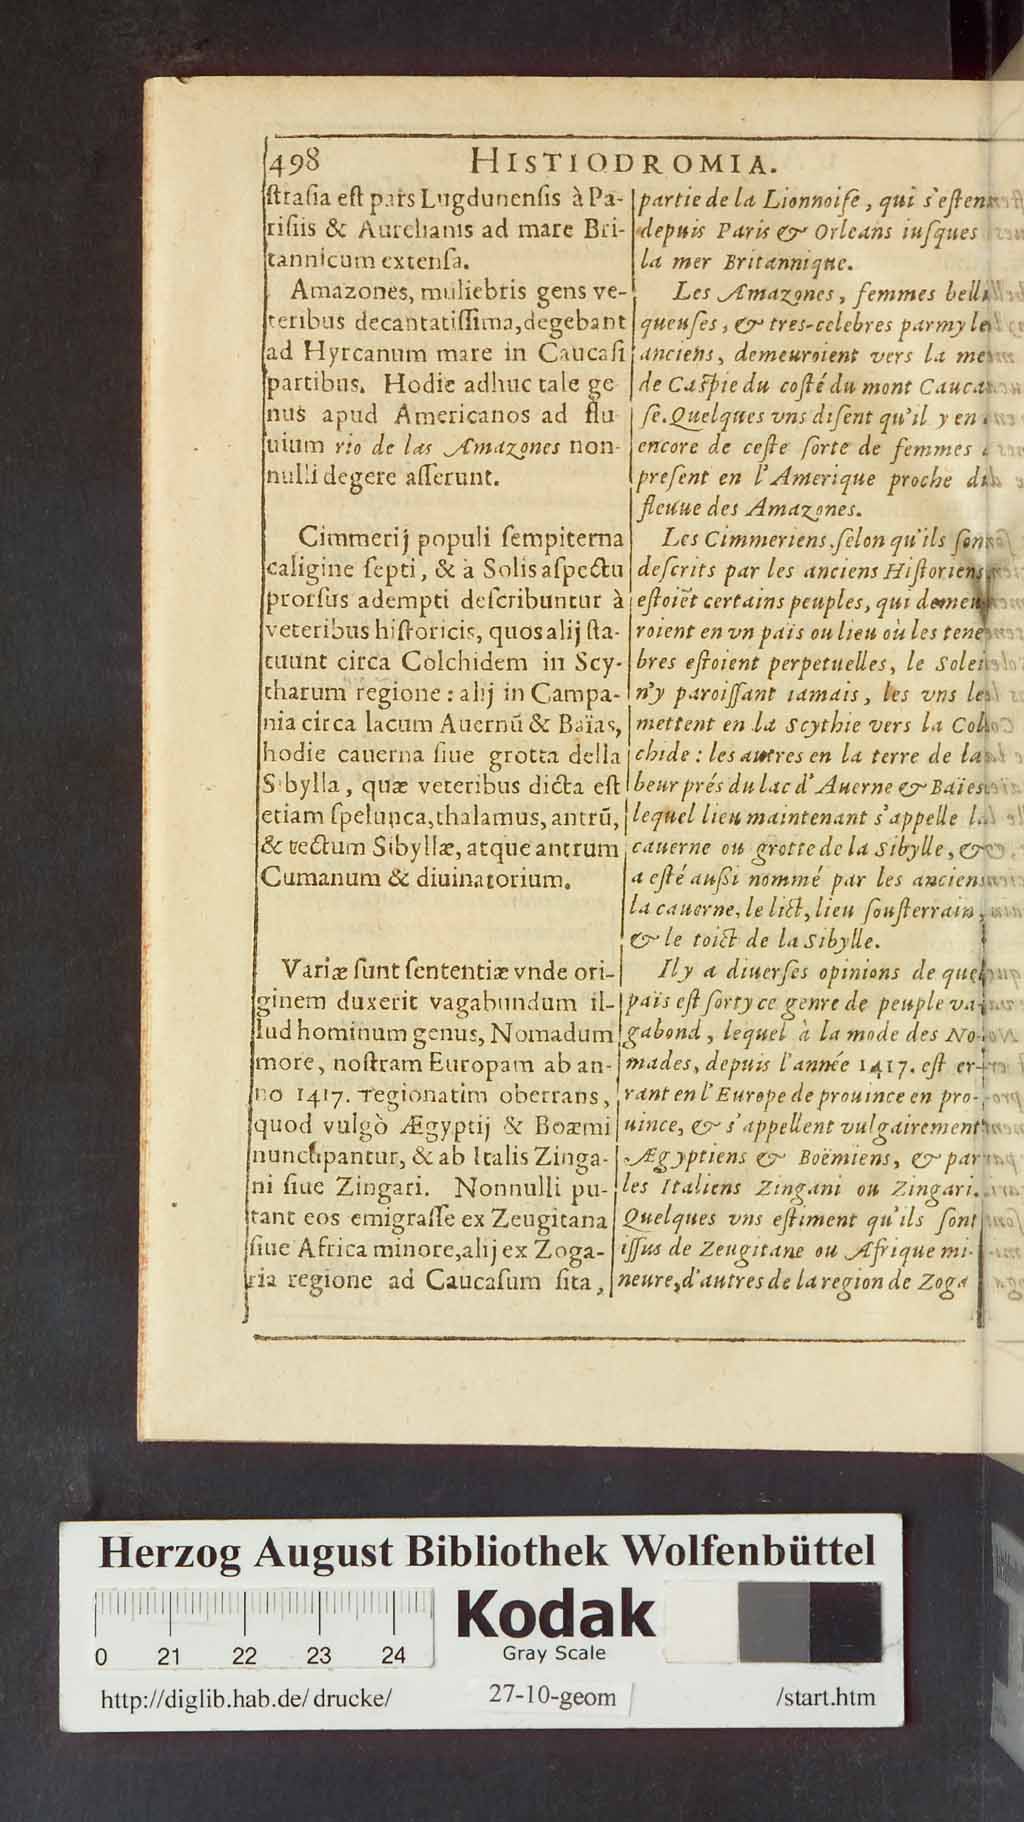 498 HISTIODROMIA.
ſtraſia eſt pars Lugdunenſis à Pa-
riſiis & Aurelianis ad mare Bri-
tannicum extenſa.
Amazones, muliebris gens ve-
teribus decantatiſſima, degebant
ad Hyrcanum mare in Caucaſi
partibus. Hodie adhuc tale ge
nus apud Americanos ad flu
uium rio de las Amazones non-
nulli degere aſſerunt.
Cimmerij populi ſempiterna
caligine ſepti, & à Solis aſpectu
prorſus adempti deſcribuntur à
veteribus hiſtoricis, quos alij ſta-
tuunt circa Colchidem in Scy-
tharum regione: alij in Campa-
nia circa lacum Auernū & Baïas,
hodie cauerna ſiue grotta della
Sibylla, quæ veteribus dicta eſt
etiam ſpelunca, thalamus, antrū,
& tectum Sibyllæ, atque antrum
Cumanum & diuinatorium.
Variæ ſunt ſententiæ vnde ori-
ginem duxerit vagabundum il-
lud hominum genus, Nomadum
more, noſtram Europam ab an-
no 1417. regionatim oberrans,
quod vulgò Ægyptij & Boæmi
nuncupantur, & ab Italis Zinga-
ni ſiue Zingari. Nonnulli pu-
tant eos emigraſſe ex Zeugitana
ſiue Africa minore, alij ex Zoga-
ria regione ad Caucaſum ſita,
partie de la Lionnoiſe, qui s'eſten
depuis Paris & Orleans iuſques
la mer Britannique.
Les Amazones, femmes belli
queuſes, & tres-celebres parmy les
anciens, demeuroient vers la mer
de Caſpie du coſté du mont Cauca
ſe. Quelques vns diſent qu'il y en
encore de ceſte ſorte de femmes à
preſent en l'Amerique proche du
fleuue des Amazones.
Les Cimmeriens, ſelon qu'ils ſont
deſcrits par les anciens Hiſtoriens,
eſtoiēt certains peuples, qui demeu
roient en vn païs ou lieu où les tene
bres eſtoient perpetuelles, le Soleil
n'y paroiſſant iamais, les vns les
mettent en la Scythie vers la Col
chide: les autres en la terre de la
beur prés du lac d'Auerne & Baïes
lequel lieu maintenant s'appelle la
cauerne ou grotte de la Sibylle, &
a eſté auſſi nommé par les anciens
la cauerne, le lict, lieu ſouſterrain,
& le toict de la Sibylle.
Il y a diuerſes opinions de quel
païs eſt ſorty ce genre de peuple va-
gabond, lequel à la mode des No-
mades, depuis l'année 1417. eſt er-
rant en l'Europe de prouince en pro-
uince, & s'appellent vulgairement
Ægyptiens & Boëmiens, & par
les Italiens Zingani ou Zingari.
Quelques vns eſtiment qu'ils ſont
iſſus de Zeugitane ou Afrique mi-
neure, d'autres de la region de Zoga
Herzog August Bibliothek Wolfenbüttel
0 21 22 23 24
Kodak
Gray Scale
http://diglib.hab.de/drucke/ 27-10-geom /start.htm